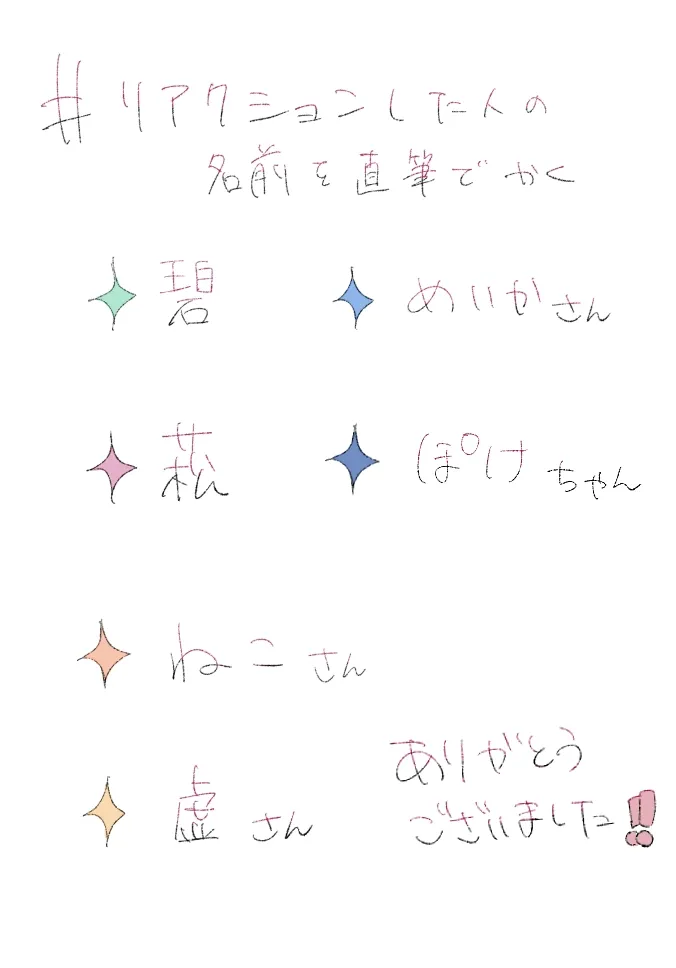 #リアクションした人の
名前を直筆でかく
碧
めいかさん
菘
ぽけちゃん
ねこさん
虚さん
ありがとう
ございました!!